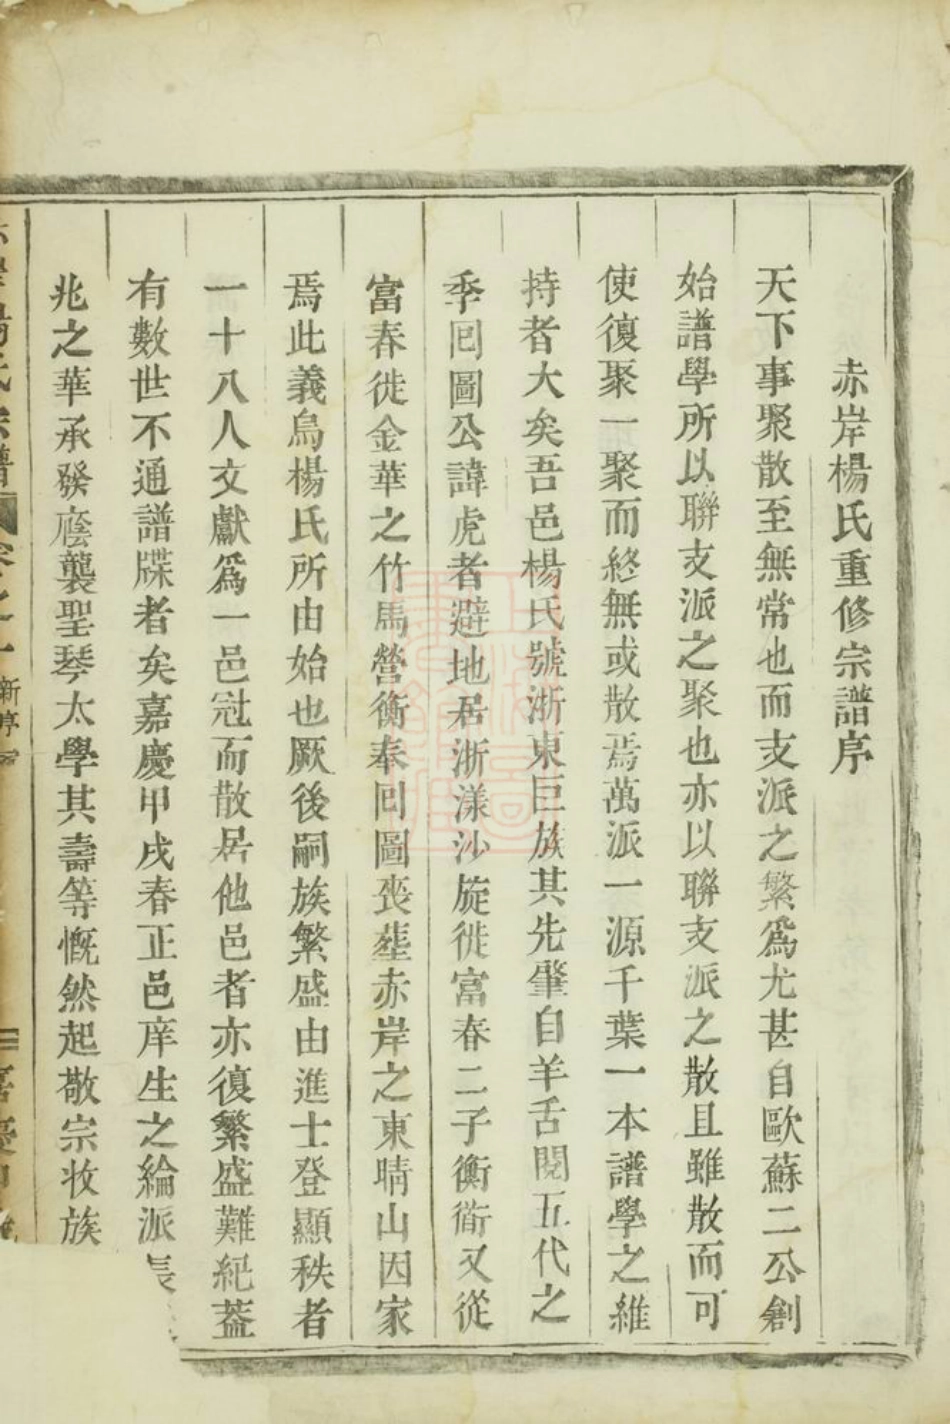 赤岸楊氏重修宗譜序
天下事聚散至無常也而支派之繁爲尤甚自歐蘇二公創
始譜學所以聯支派之聚也亦以聯支派之散且雖散而可
使復聚一聚而終無或散焉萬派一源千葉一本譜學之維
持者大矣吾邑楊氏號浙東巨族其先肇自羊舌閱五代之
季囘圖公諱虎者避地居浙漾沙旋徙富春二子衡衙又從
富春徙金華之竹馬營衡奉囘圖喪塟赤岸之東晴山因家
焉此義烏楊氏所由始也厥後嗣族繁盛由進士登顯秩者
一十八人文獻爲一邑冠而散居他邑者亦復繁盛難紀葢
有數世不通譜牒者矣嘉慶甲戌春正邑庠生之綸派長
兆之華承發廕襲聖琴太學其壽等慨然起敬宗收族
赤岸楊氏宗譜 卷之一 新序 嘉慶甲